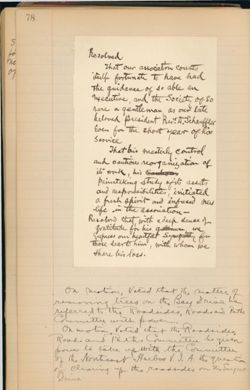 78
Resolved
That our association counts
itself fortunate to have had
the guidance of so able an
executive, and the Society of so
rare a gentleman as our late
beloved President Rev. W.
Even for the short year of his
service
That his masterly control
and cautious reorganization of
its work, his
painstaking study of its assets
and responsibilities, initiated
a fresh spirit and infused new
life in the association—
Resolved that with a deep sense of
gratitude for his we
express our heartfelt sympathy for
those dear to him, with whom we
share his loss.
On motion, Voted that the matter of
removing trees on the Bay Drive be
referred to the Roadsides, Roads and Paths
Committee with power.
On motion, Voted that the Roadsides,
Roads and Paths Committee be given
power to take up with the Committee
of the Northeast Harbor V. I. A. the question
of clearing up the roadsides on the Sargent
Drive